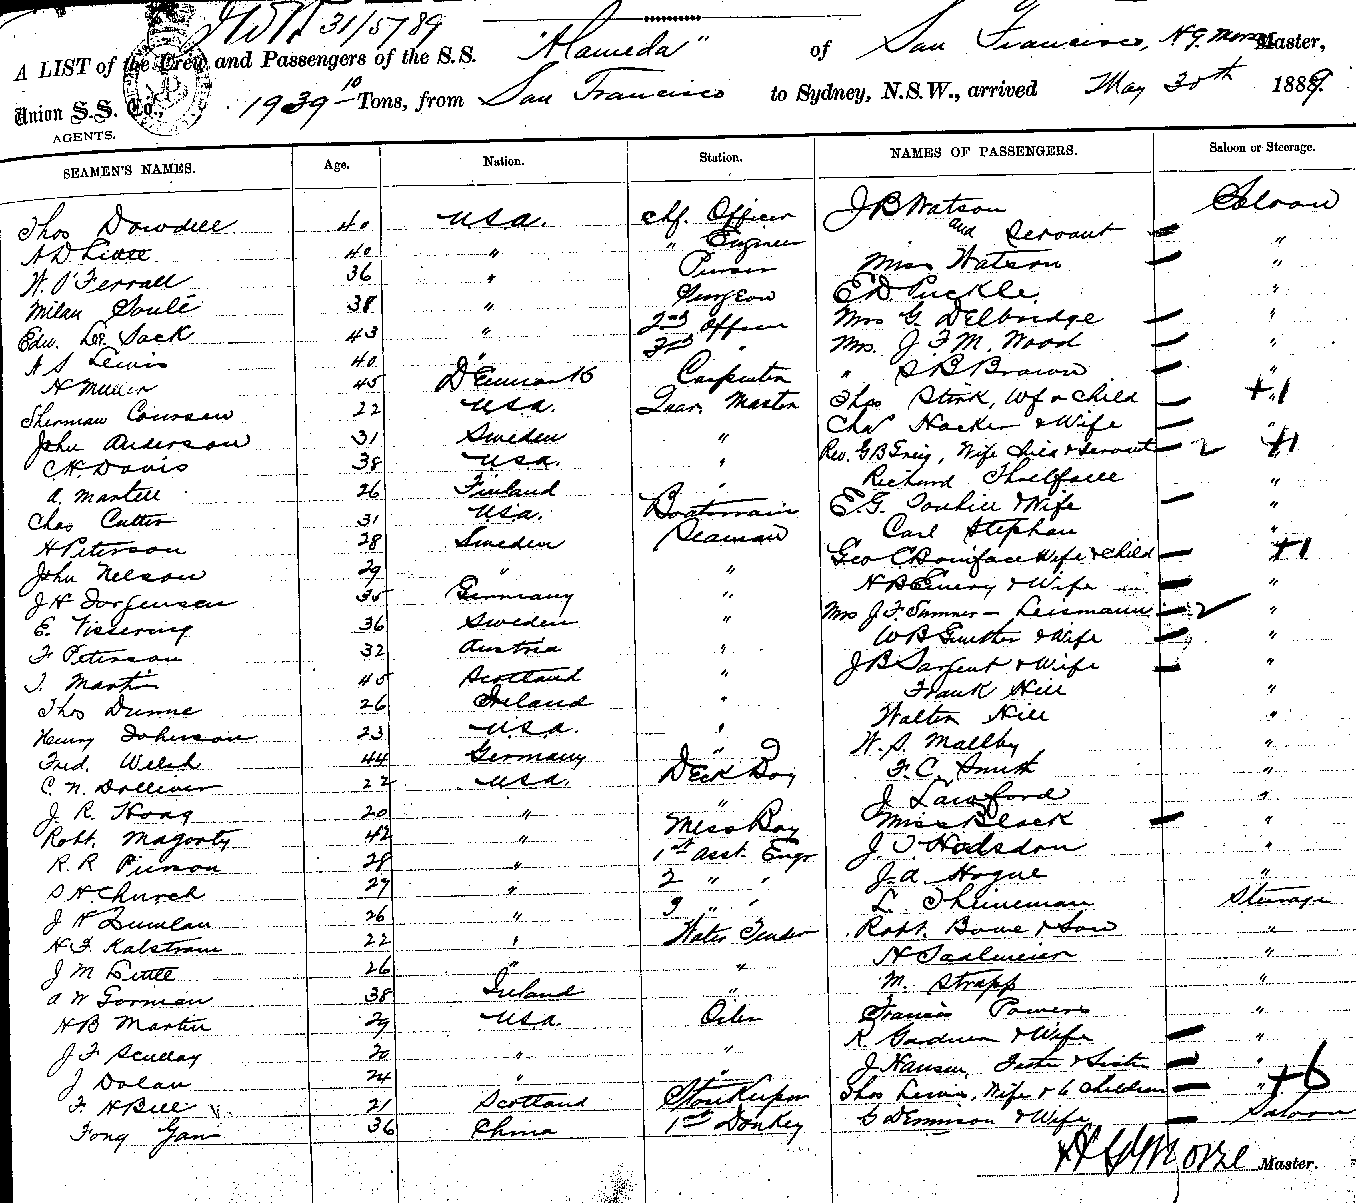 31/5/89
A LIST of the Crew and Passengers of the S.S. "Alameda" of San Francisco, H G Morse Master,
Union S.S. Co., 1939 10 Tons, from San Francisco to Sydney, N.S.W., arrived May 30th 1889.
AGENTS.
SEAMEN'S NAMES. Age. Nation. Station. NAMES OF PASSENGERS. Saloon or Steerage.
Thos Dowdell 40 U.S.A. Chf. Officer J B Watson Saloon
40 " " Engineer and Servant "
36 " Purser Miss Watson "
Milan Soulé 38 " Surgeon E D Puckle "
Edw. 43 " 2nd Officer Mrs G. Delbridge "
A S Lewis 40 " 3rd " Mrs. J. F. M. Wood "
H Muller 45 Denmark Carpenter " S B Brown "
Sherman 22 U.S.A. Quar. Master Thos Stork, Wf & Child " +1
John Anderson 31 Sweden " Chas Hacker & Wife "
C H Davis 38 U.S.A. " Rev. G B Greig, Wife Child & Servant 2 " +1
A. Martell 26 Finland " Richard Threlfall "
Chas Cutter 31 U.S.A. Boatswain E. G. & Wife "
H Peterson 28 Sweden Seaman Carl Stephan "
John Nelson 29 " " Geo C Boniface Wife & Child " +1
J H Jorgensen 35 Germany " H B Emery & Wife "
E. Vissering 36 Sweden " Mrs J. F. Sumner – 2 "
F Peterson 32 Austria " W B & Wife "
T. Martin 45 Scotland " J B Sargent & Wife "
Thos Dunne 26 Ireland " Frank Hill "
Henry Johnson 23 U.S.A. " Walter Hill "
Fred. Welsh 44 Germany " W. S. Mallby "
C. N. Dolliver 22 U.S.A. Deck Boy F. C. Smith "
J. R. 20 " " J Lawford "
Robt. Magorty 42 " Mess Boy Miss Black "
R. R. 28 " 1st Asst. Engr J. T. Hodsdon "
S H Church 27 " 2 " " J. A. Hogue "
J H 26 " 3 " " L. Thuneman Steerage
H. F. Kalstrom 22 " Water Tender Robt. Bowe & Son "
J M Little 26 " " H "
A W Gorman 38 Ireland " M. Strapp "
H B Martin 29 U.S.A. Oiler Francis Powers "
J F Sculley 20 " " R Gardner & Wife "
J Dolan 24 " " J Hansen, & Sister "
F H Bell 21 Scotland Storekeeper Thos Lewis, Wife & 6 Children " +6
Fong Gan 36 China 1st Donkey G Dennison & Wife Saloon
H G Morse Master.